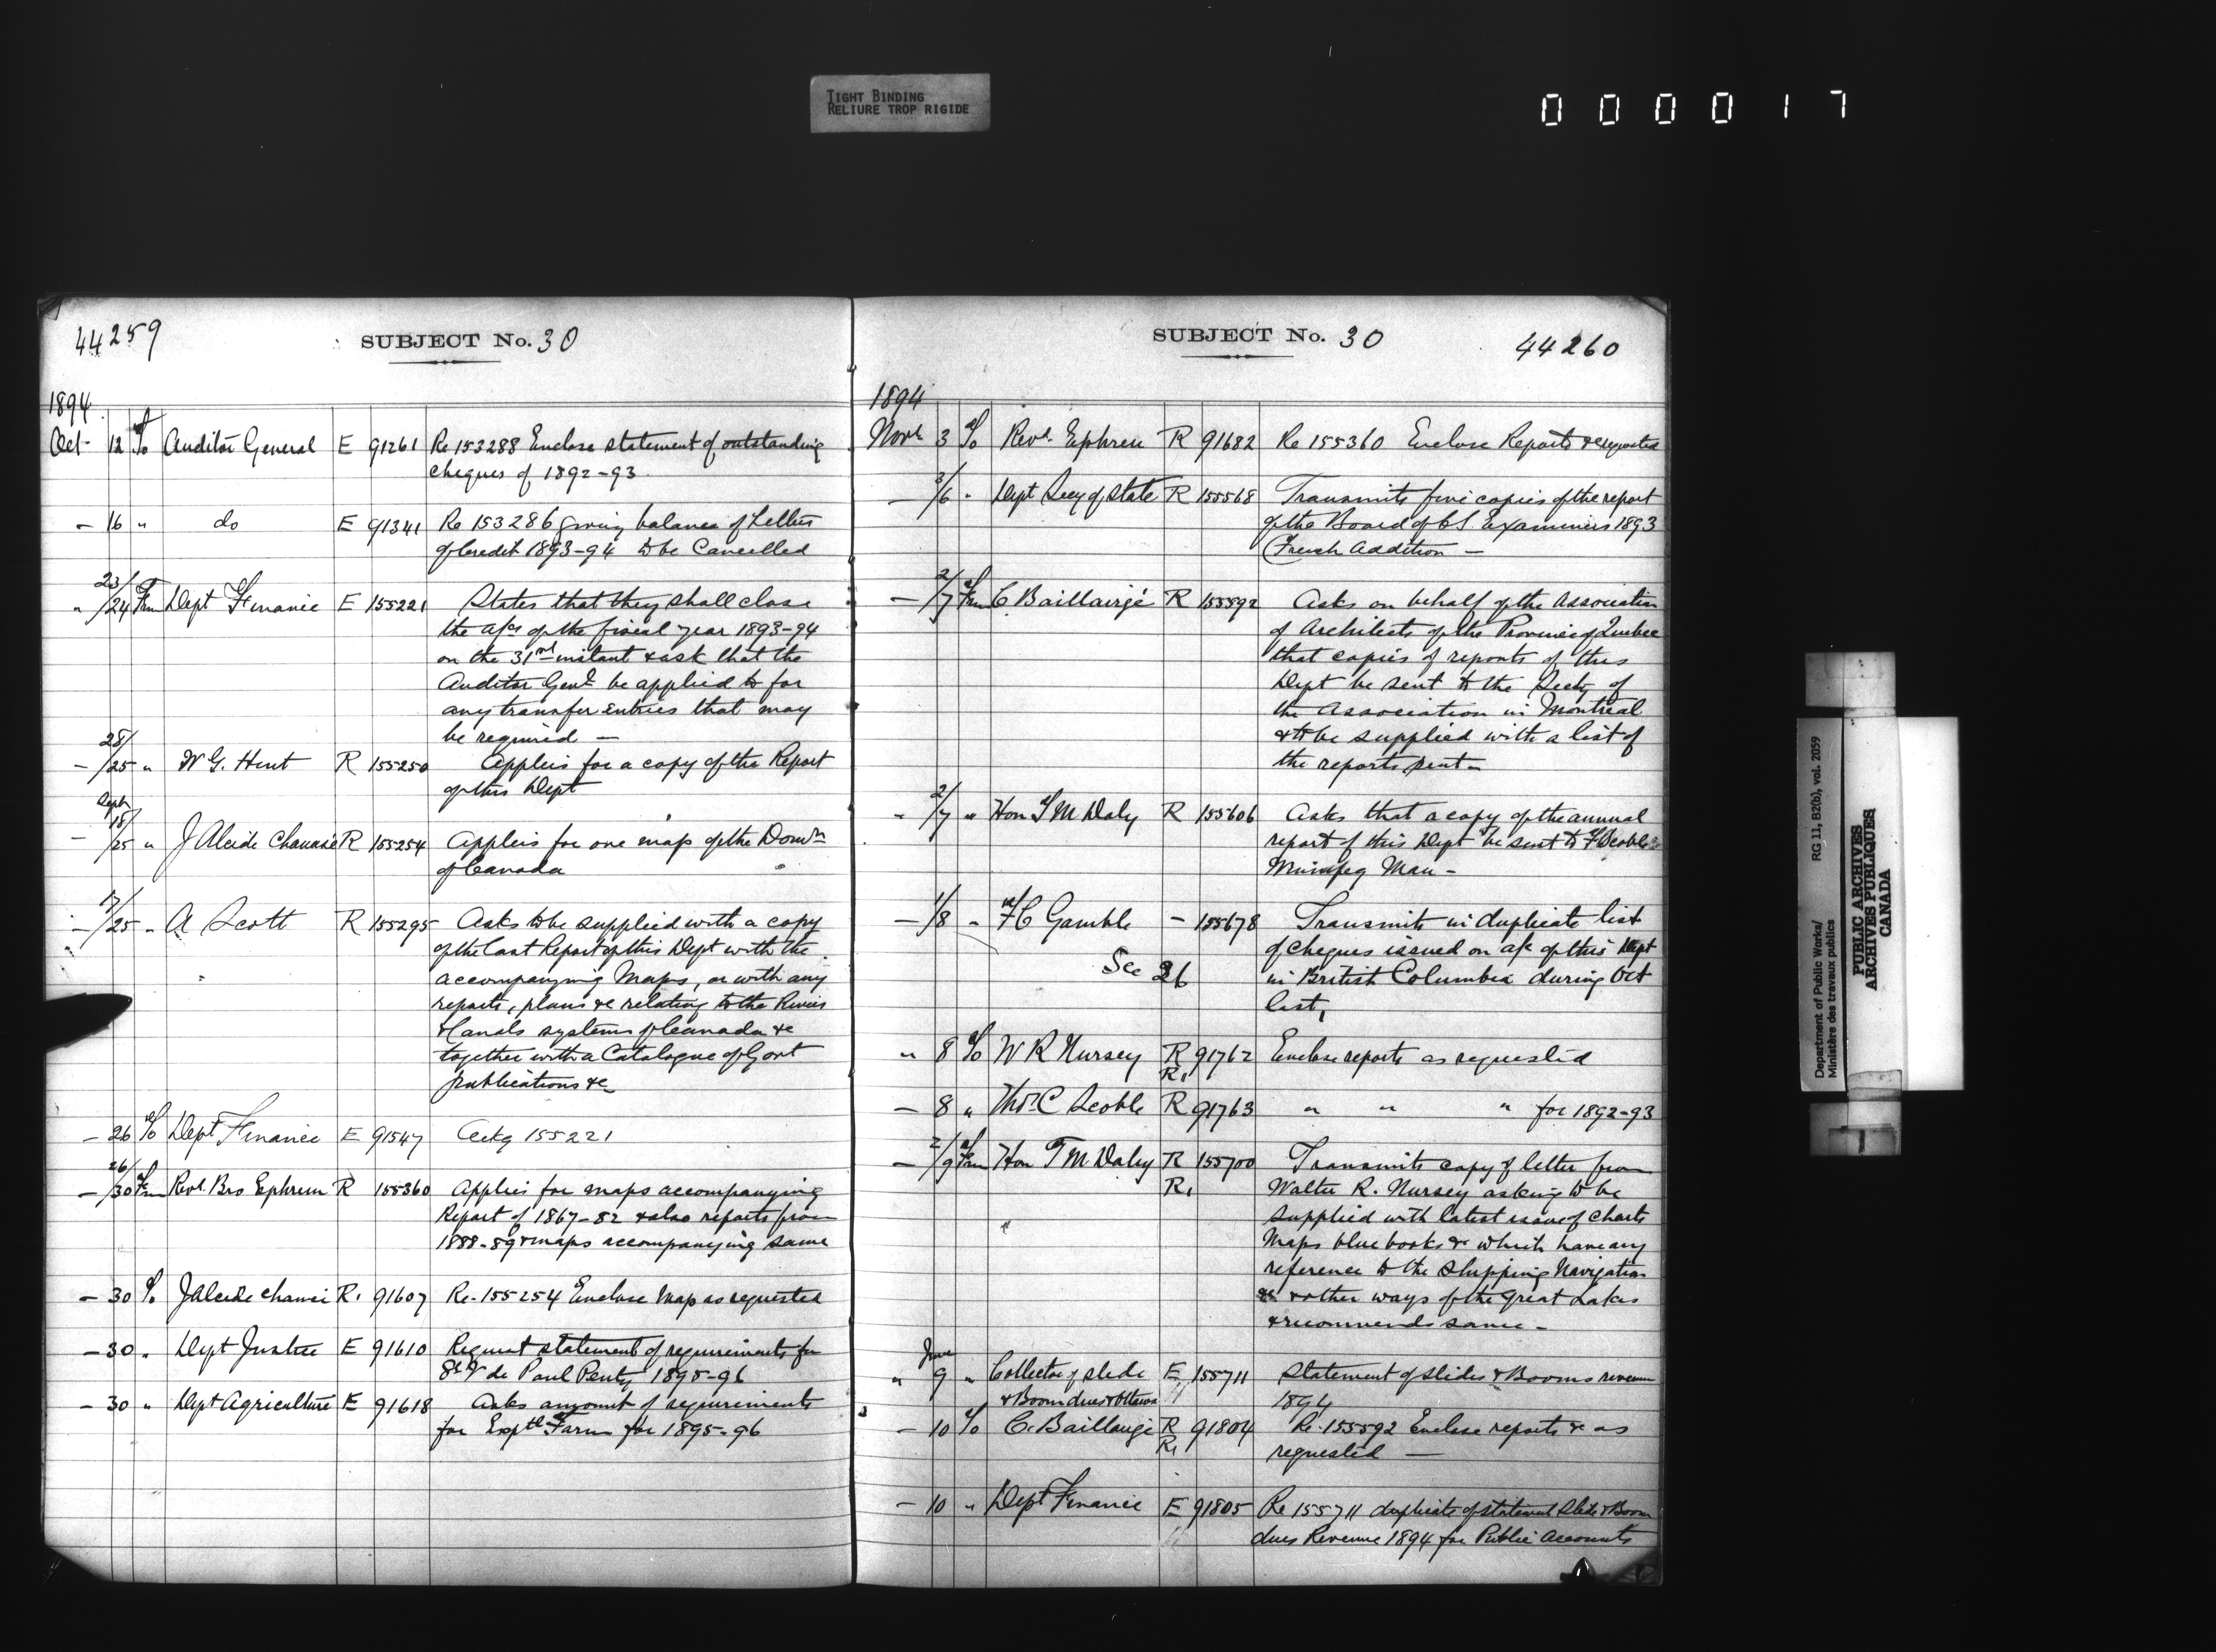 TIGHT BINDING
RELIURE TROP RIGIDE
000017
44259
SUBJECT No. 30
1894
Oct 12 To Auditor General E 91261 Re 153288 Enclose statement of outstanding
cheques of 1892-93.
- 16 " do E 91341 Re 153286 giving balance of Letters
of Credit 1893-94 to be Cancelled
" 23/24 Frm Dept Finance E 155221 States that they shall close
the a/cs of the fiscal year 1893-94
on the 31st instant & ask that the
Auditor Genl be applied to for
any transfer entries that may
be required -
- 25 " W G. Hunt R 155250 Applies for a copy of the Report
of this Dept
Sept
- 18/25 " J Alcide Chaussé R 155254 Applies for one map of the Domn
of Canada
- /25 " A Scott R 155295 Asks to be supplied with a copy
of the last Report of this Dept with the
accompanying Maps, or with any
reports, plans &c relating to the Rivers
& Canals systems of Canada &c
together with a Catalogue of Govt
publications &c
- 26 To Dept Finance E 91547 Ackg 155221
- 26/30 Frm Revd. Bro Ephrem R 155360 Applies for maps accompanying
Report of 1867-82 & also reports from
1888-89 & maps accompanying same
- 30 To J Alcide R. 91607 Re. 155254 Enclose Map as requested
- 30 " Dept Justice E 91610 Request statement of requirements for
St V de Paul Penty 1895-96
- 30 " Dept Agriculture E 91618 Asks amount of requirements
for Exptl Farm for 1895-96
SUBJECT No. 30
44260
1894
Novr 3 To Revd. Ephrem R 91682 Re 155360 Enclose Reports &c requested
- 3/6 " Dept Secy of State R 155568 Transmits five copies of the report
of the Board of C S. Examiners 1893
(French Addition -
- 2/7 Frm C Baillairgé R 155592 Asks on behalf of the Association
of Architects of the Province of Quebec
that copies of reports of this
Dept be sent to the Secty of
the Association in Montreal
& to be supplied with a list of
the reports sent -
- 2/7 " Hon T M Daly R 155606 Asks that a copy of the annual
report of this Dept be sent to
Winnipeg Man -
- 1/8 " F C Gamble - 155678 Transmits in duplicate list
of cheques issued on a/c of this Dept
See 26 in British Columbia during Oct
last,
" 8 To W R Nursey R 91762 Enclose reports as requested
R1
- 8 " Thos C Scoble R 91763 " " " for 1892-93
- 2/9 Frm Hon T M Daly R 155700 Transmits copy of letter from
R1 Walter R. Nursey asking to be
supplied with latest issue of charts
Maps blue books &c which have any
reference to the Shipping Navigation
& other ways of the Great Lakes
& recommends same -
June
" 9 " Collector of slide E 155711 Statement of slides & Booms revenue
& Boom dues Ottawa 1894
- 10 To C. Baillairgé R 91804 Re. 155592 Enclose reports &c as
R1 requested -
- 10 " Dept Finance E 91805 Re 155711 duplicate of statement Slide & Boom
dues Revenue 1894 for Public Accounts
Department of Public Works/
Ministère des travaux publics
RG 11, B2(b), vol. 2059
PUBLIC ARCHIVES
ARCHIVES PUBLIQUES
CANADA